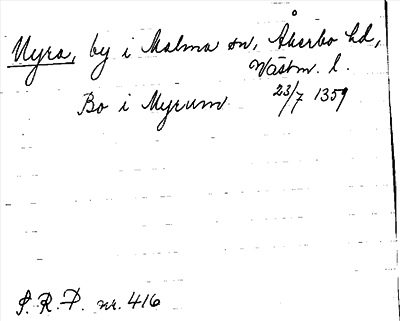 Myra, by i Malma sn, Åkerbo hd,
Västm. l.
Bo i Myrum 23/7 1359
S. R. P. nr. 416